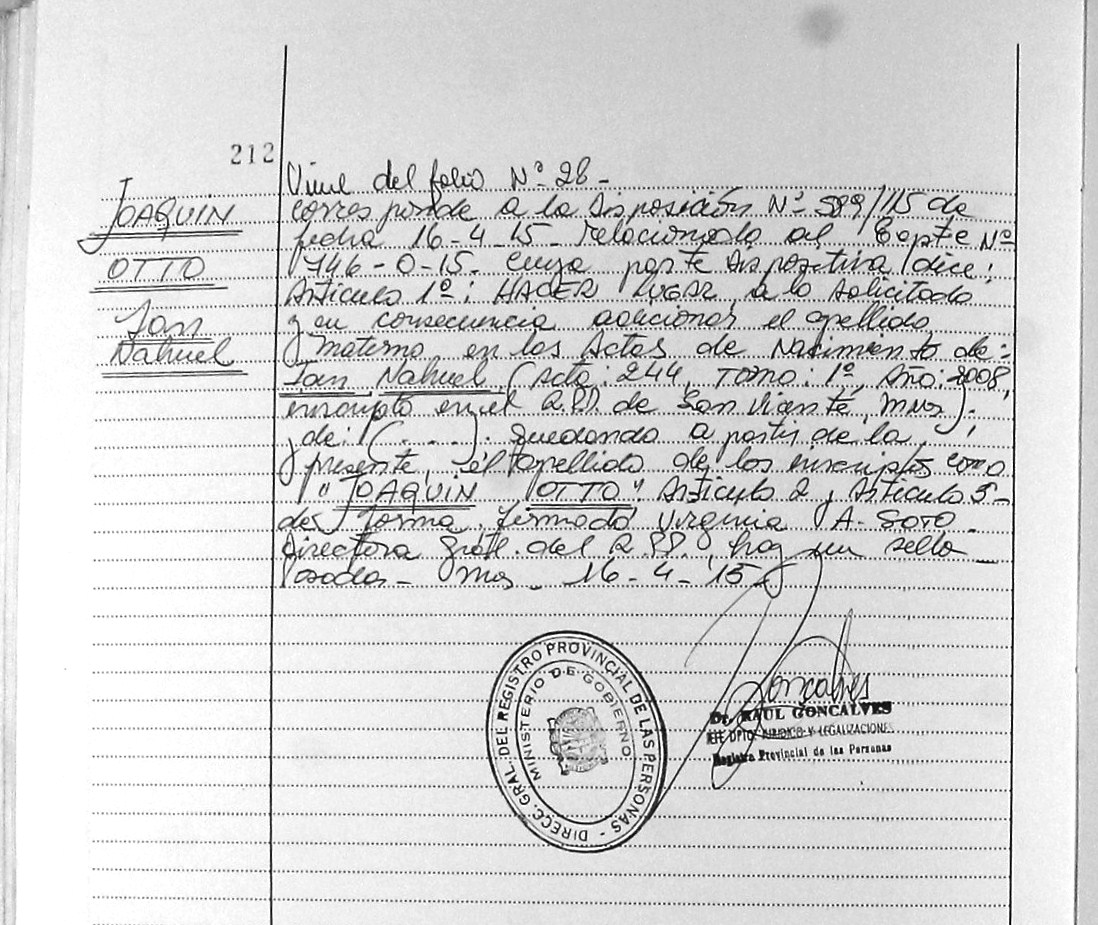 212
Viene del folio Nº 28 -
JOAQUIN
corresponde a la Disposición Nº 589/115 de
fecha 16-4-15- relacionada al Expte Nº
OTTO
746-O-15. cuya parte dispositiva dice:
Artículo 1º: HACER LUGAR, a lo solicitado
Ian
y en consecuencia adicionar el apellido
Nahuel
materno, en las Actas de Nacimiento de:
Ian Nahuel (Acta: 244, Tomo: 1º, Año: 2008,
inscripto en el R.P.P. de San Vicente, Mnes).
y de: (....). quedando a partir de la
presente, el apellido de los inscriptos como
"JOAQUIN OTTO" Artículo 2, Artículo 3-
de forma. firmado Virginia A. SOTO-
Directora Gral. del R.PP., hay un sello
Posadas- Mnes 16-4-15
DIRECC. GRAL. DEL REGISTRO PROVINCIAL DE LAS PERSONAS -
MINISTERIO DE GOBIERNO
Goncalves
Dr. RAUL GONCALVES
JEFE DPTO. JURIDICO Y LEGALIZACIONES
Registro Provincial de las Personas